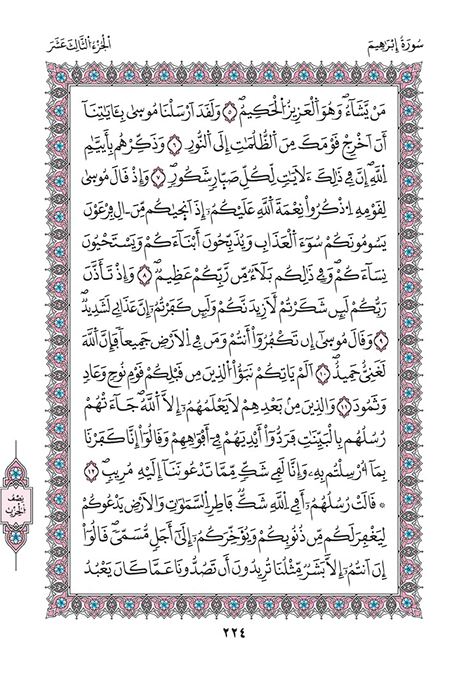 سُورَةُ إِبْرَٰهِيمَ
اَلْجُزْءُ الثَّالِثَ عَشَرَ
مَنْ يَّشَآءُ وَهُوَ اَ۬لْعَزِيزُ اُ۬لْحَكِيمُۖ ٥ وَلَقَدَ اَرْسَلْنَا مُوس۪يٰ بِـَٔايَٰتِنَآ
أَنَ اَخْرِجْ قَوْمَكَ مِنَ اَ۬لظُّلُمَٰتِ إِلَى اَ۬لنُّورِۖ ٦ وَذَكِّرْهُم بِأَيَّيٰمِ
اِ۬للَّهِۖ إِنَّ فِے ذَٰلِكَ ءَلَايَٰتٖ لِّكُلِّ صَبّ۪ارٖ شَكُورٖۖ ٧ وَإِذْ قَالَ مُوس۪يٰ
لِقَوْمِهِ اِ۟ذْكُرُواْ نِعْمَةَ اَ۬للَّهِ عَلَيْكُمُۥٓ إِذَ اَنج۪يٰكُم مِّنَ اٰلِ فِرْعَوْنَ
يَسُومُونَكُمْ سُوٓءَ اَ۬لْعَذَابِ وَيُذَبِّحُونَ أَبْنَآءَكُمْ وَيَسْتَحْيُونَ
نِسَآءَكُمْۖ وَفِے ذَٰلِكُم بَلَآءٞ مِّن رَّبِّكُمْ عَظِيمٞۖ ٨ وَإِذْ تَأَذَّنَ
رَبُّكُمْ لَئِن شَكَرْتُمْ لَأَزِيدَنَّكُمْ وَلَئِن كَفَرْتُمُۥٓ إِنَّ عَذَابِے لَشَدِيدٞۖ
٩ وَقَالَ مُوس۪يٰٓ إِن تَكْفُرُوٓاْ أَنتُمْ وَمَن فِے اِ۬لْأَرْضِ جَمِيعاٗ فَإِنَّ اَ۬للَّهَ
لَغَنِيٌّ حَمِيدٌۖ ١٠ اَلَمْ يَاتِكُمْ نَبَؤُاْ اُ۬لذِينَ مِن قَبْلِكُمْ قَوْمِ نُوحٖ وَعَادٖ
وَثَمُودَۖ ١١ وَالذِينَ مِنۢ بَعْدِهِمْ لَا يَعْلَمُهُمُۥٓ إِلَّا اَ۬للَّهُۖ جَآءَتْهُمْ
رُسُلُهُم بِالْبَيِّنَٰتِ فَرَدُّوٓاْ أَيْدِيَهُمْ فِےٓ أَفْوَٰهِهِمْ وَقَالُوٓاْ إِنَّا كَفَرْنَا
بِمَآ أُرْسِلْتُم بِهِۦ وَإِنَّا لَفِے شَكّٖ مِّمَّا تَدْعُونَنَآ إِلَيْهِ مُرِيبٖۖ ١٢
۞ قَالَتْ رُسُلُهُمُۥٓ أَفِے اِ۬للَّهِ شَكّٞ فَاطِرِ اِ۬لسَّمَٰوَٰتِ وَالْأَرْضِ يَدْعُوكُمْ
لِيَغْفِرَ لَكُم مِّن ذُنُوبِكُمْ وَيُوَخِّرَكُمُۥٓ إِلَىٰٓ أَجَلٖ مُّسَمّىٗۖ قَالُوٓاْ
إِنَ اَنتُمُۥٓ إِلَّا بَشَرٞ مِّثْلُنَا تُرِيدُونَ أَن تَصُدُّونَا عَمَّا كَانَ يَعْبُدُ
نِصْفُ
اَلْحِزْبِ
٢٢٤